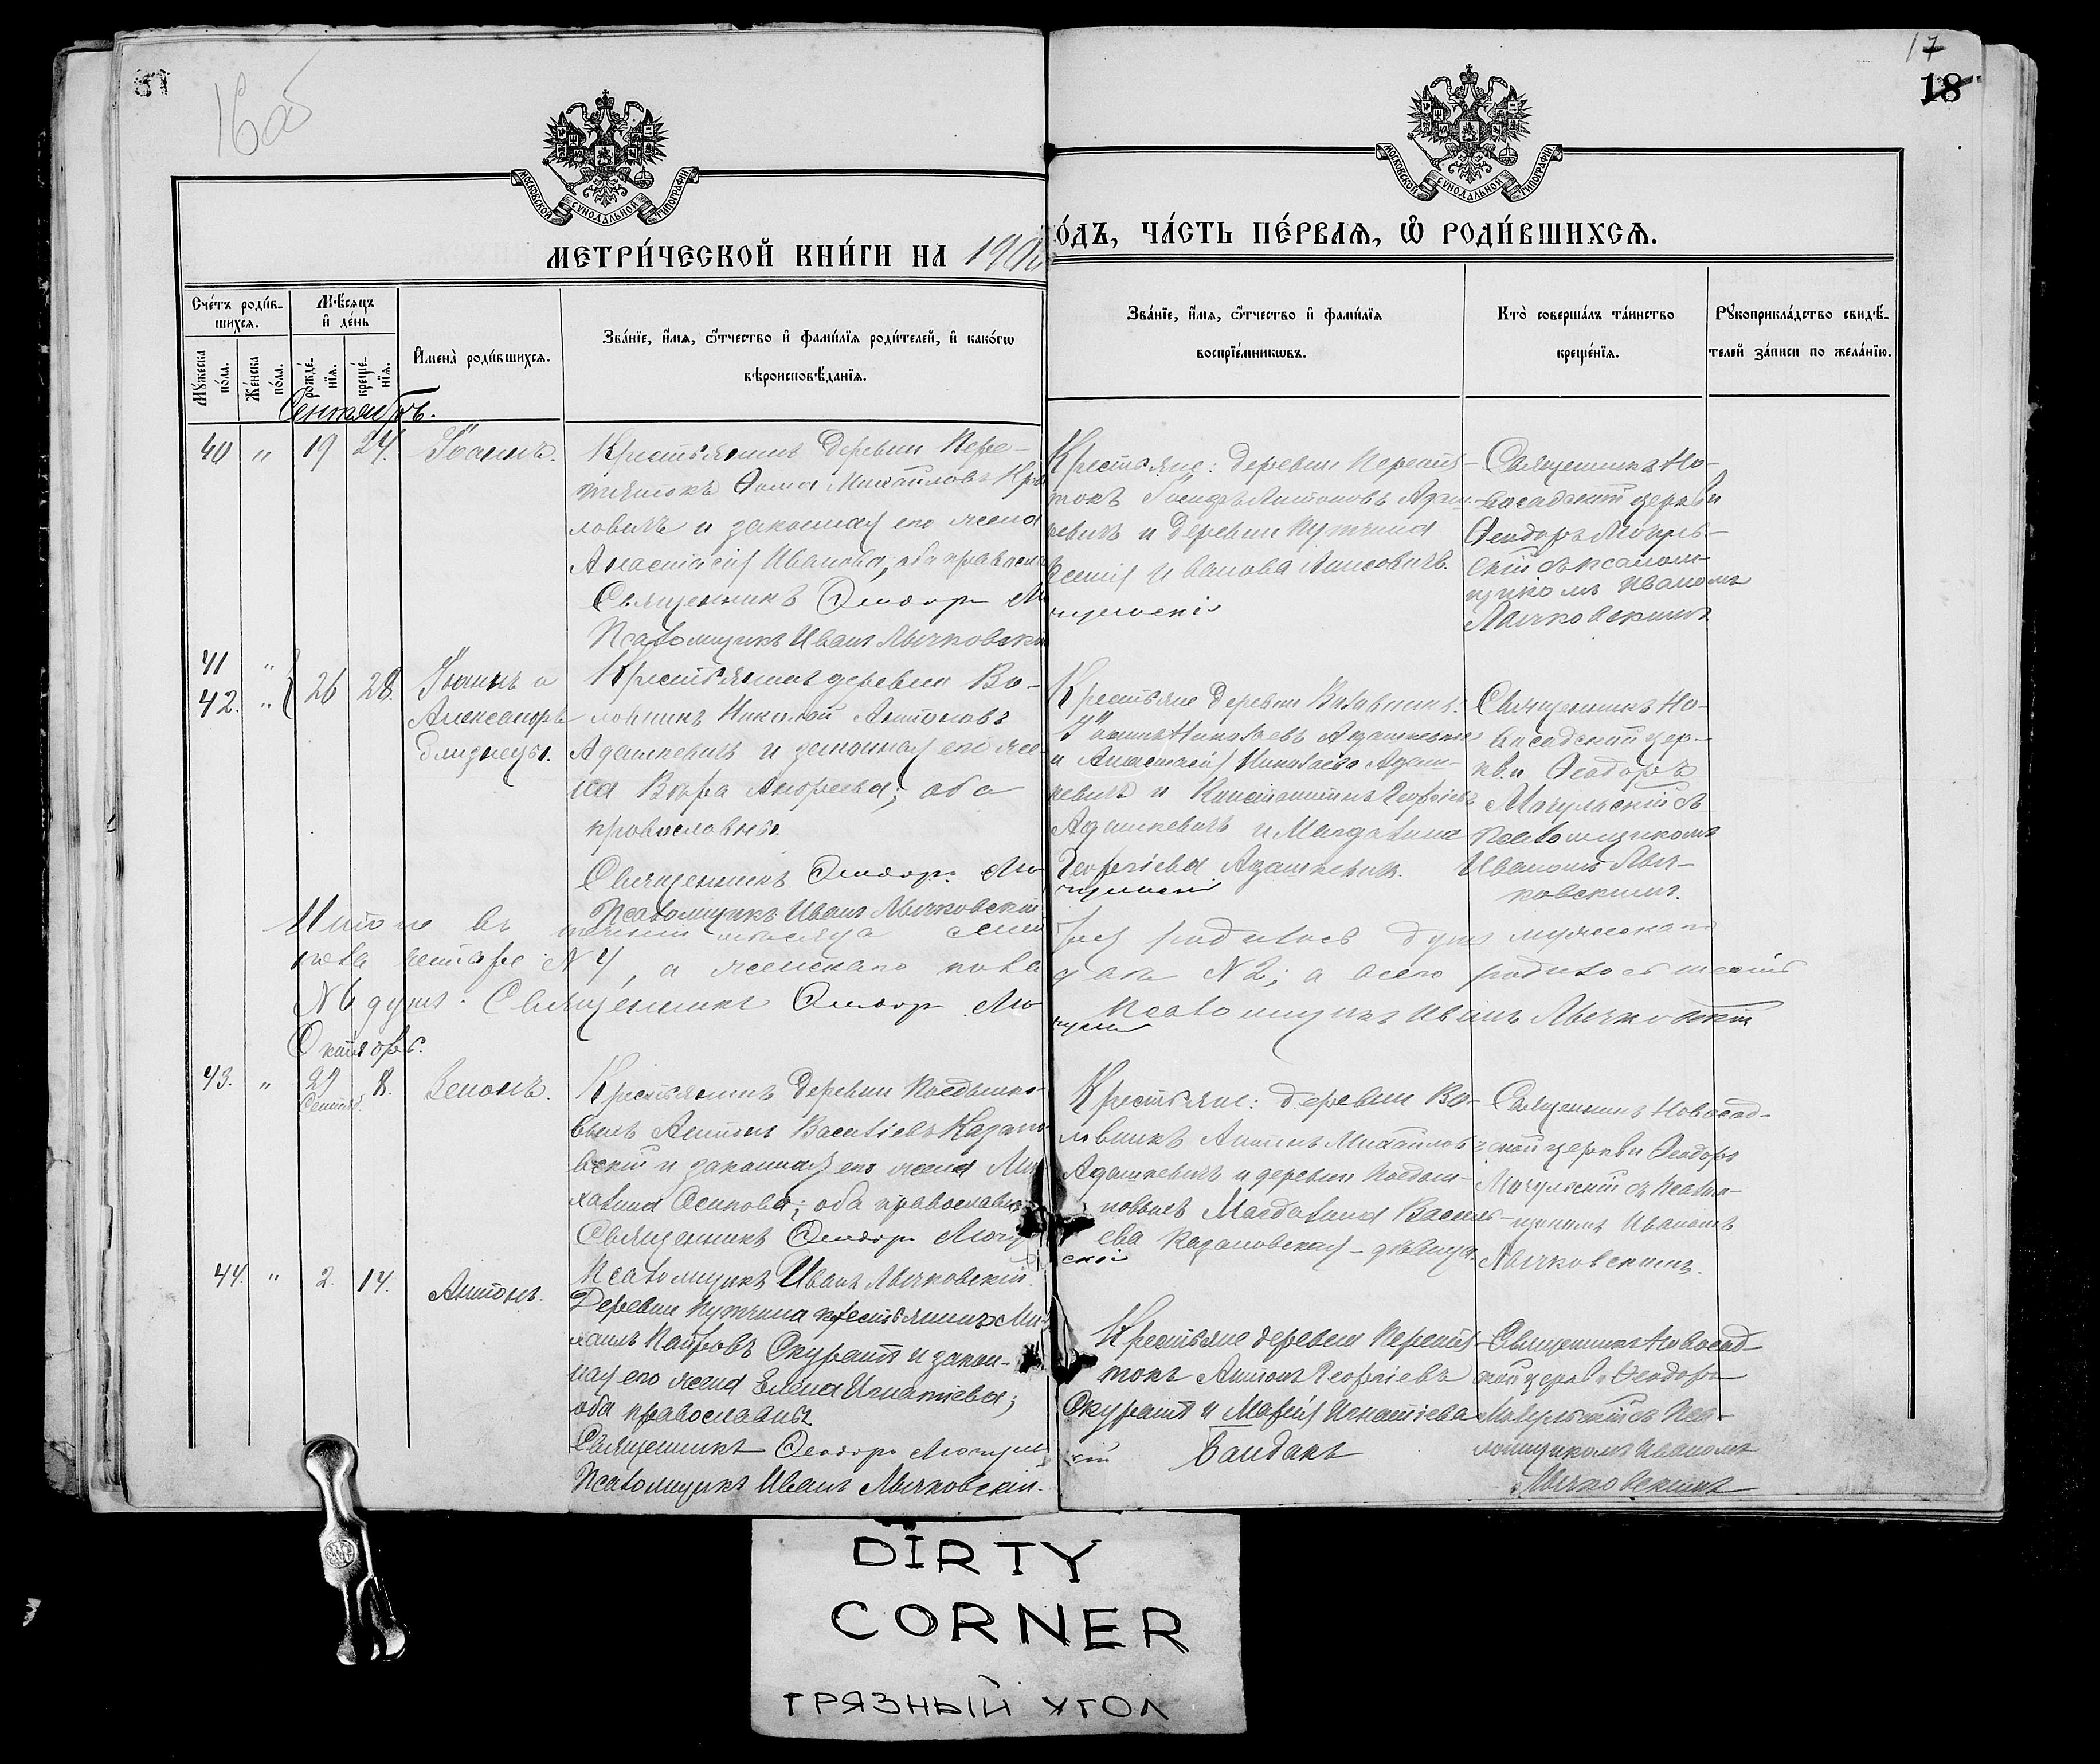 16об
17
18
МОСКОВСКОЙ СѴНОДАЛЬНОЙ ТИПОГРАФІИ
МОСКОВСКОЙ СѴНОДАЛЬНОЙ ТИПОГРАФІИ
МЕТРИ́ЧЕСКОЙ КНИ́ГИ НА 190
О́ДЪ, ЧА́СТЬ ПЕ́РВАЯ, Ѽ РОДИ́ВШИХСЯ.
Сче́тъ роди́в-
шихся.
Мꙋжеска по́ла.
Же́нска по́ла.
Мѣ́сяцъ
и҆ де́нь
рожде́-
нїя.
креще́-
нїя.
И҆мена̀ роди́вшихся.
Зва́нїе, и҆́мя, ѻ҆́тчество и҆ фами́лїя роди́телей, и҆ како́гѡ
вѣроисповѣ́данїя.
Зва́нїе, и҆́мя, ѻ҆́тчество и҆ фами́лїя
воспрїе́мникѡвъ.
Кто̀ соверша́лъ та́инство
креще́нїя.
Рꙋкоприкла́дство свидѣ́-
телей за́писи по жела́нїю.
Сентябрь.
40 " 19 24. Іоаннъ.
Крестьянинъ деревни Пере-
тятокъ Ѳома Михайловъ
ловичъ и законная его жена
Анастасія Иванова; оба правосл
Священникъ Ѳеодоръ
Псаломщикъ Иванъ Лычковскі
Крестьяне: деревни Перетя-
токъ Антоновъ Адаш-
кевичъ и деревни Путчина
Иванова
Священникъ Но-
восадской церкви
Ѳеодоръ Мочуль-
скій съ псалом-
щикомъ Иваномъ
Лычковскимъ
41 "
42. " 26 28. Іоаннъ и
Александръ
близнецы.
Крестьянинъ деревни Во-
ловникъ Николай Антоновъ
Адашкевичъ и законная его же-
на Вѣра Андреева; оба
православны
Священникъ Ѳеодоръ Мо
Псаломщикъ Иванъ Лычковскій
Крестьяне деревни
Николаевъ Адашкевичъ
и Анастасія Николаева Адаш-
кевичъ и Константинъ Георгіевъ
Адашкевичъ и Магдалина
Георгіева Адашкевичъ.
Священникъ Но-
восадской цер-
кви Ѳеодоръ
Мочульскій съ
псаломщикомъ
Иваномъ Лыч-
ковскимъ.
Итого въ теченіи мѣсяца сент
ября родилось душъ мужскаго
пола четыре № 4, а женскаго пола
два № 2; а всего родилось шесть
№ 6 душъ. Священникъ Ѳеодоръ Мо
Псаломщикъ Иванъ Лычковскій
Октябрь.
43. " 29 Сентяб. 8. Зенонъ.
Крестьянинъ деревни
Антонъ Васильевъ Казано
вскій и законная его жена Ми
халина Осипова; оба православны
Священникъ Ѳеодоръ Мочул
Псаломщикъ Иванъ Лычковскій.
Крестьяне: деревни Во-
ловникъ Антонъ Михайловъ
Адашкевичъ и деревни
Магдалина Василь-
ева Казановская – дѣвица.
скій
Священникъ Новосад-
ской церкви Ѳеодоръ
Мочульскій съ псалом-
щикомъ Иваномъ
Лычковскимъ.
44. " 2. 14. Антонъ.
Деревни Путчина крестьянинъ Ми-
хаилъ Петровъ Скуратъ и закон-
ная его жена Елена Игнатіева;
оба православны
Священникъ Ѳеодоръ Мочул
Псаломщикъ Иванъ Лычковскій.
Крестьяне деревни Перетя-
токъ Антонъ Георгіевъ
Скуратъ и Марія Игнатіева
скій Бандакъ
Священникъ Новосад-
ской церкви Ѳеодоръ
Мочульскій съ пса-
ломщикомъ Иваномъ
Лычковскимъ
DIRTY
CORNER
ГРЯЗНЫЙ УГОЛ